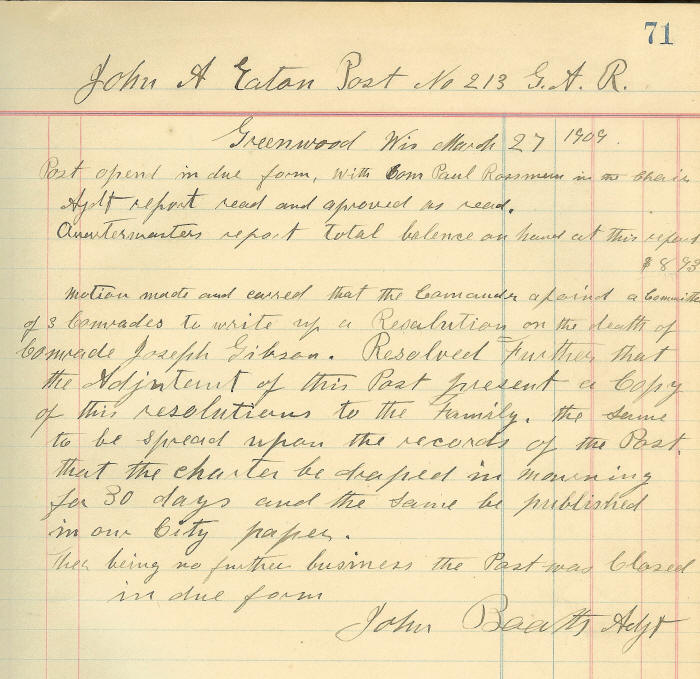 71
John A Eaton Post No 213 G.A.R.
Greenwood Wis March 27 1909.
Post opend in due form, with Com Paul Rossman in the Chair
Ajdt report read and aproved as read.
Quartermasters report total balence on hand at this report
$8.93
Motion made and carred that the Comander apoind a Committe
of 3 Comrades to write up a Resalution on the death of
Comrade Joseph Gibson. Resolved Further that
the Adjntant of this Post present a Copy
of this resolutions to the Family. the same
to be spread upon the records of the Post.
that the charter be draped in mourning
for 30 days and the same be published
in our City paper.
Ther being no further business the Post was Closed
in due form
John Adjt